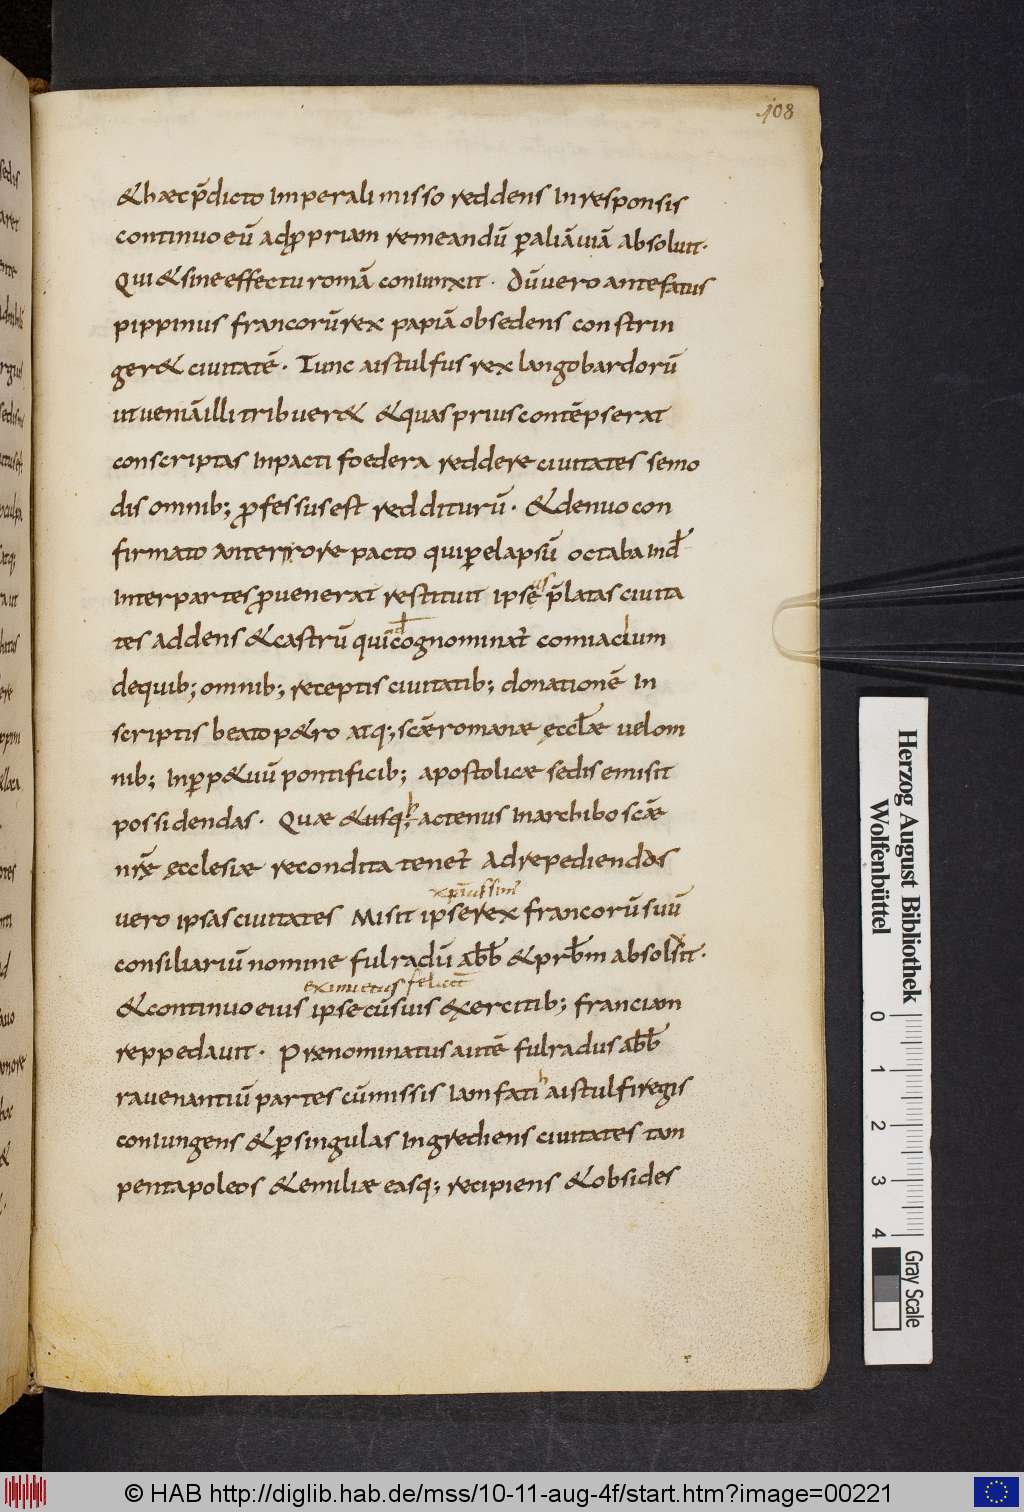 108
&haec p̄dicto Imperali misso reddens In responsis
continuo eū ad ꝓpriam remeandū ꝑ aliā uiā absoluit·
Qui & sine effectu romā coniunxit · Dū uero antefatus
pippinus francorū rex papiā obsedens constrin
ger& ciuitatē · Tunc aistulfus rex langobardorū
ut ueniā illi tribuer& & quas prius contēpserat
conscriptas In pacti foedera reddere ciuitates semo
dis omnib; ꝓfessus est redditurū · & denuo con
firmato anteriore pacto qui ꝑ elapsū octaba Ind̄
Inter partes ꝓuenerat restituit ipsē as p̄latas ciuita
tes addens & castrū qui cognominat̄ comiaclum
de quib; omnib; receptis ciuitatib; donationē In
scriptis beato p&ro atq; scae romanae ęccl̄ae uel om
nib; In ꝑp&uū pontificib; apostolicae sedis emisit
possidendas · Quae & usq; h actenus In archibo scāe
nr̄ę ęcclesiae recondita tenet̄ Ad repediendos
xp̄ianissim'
uero ipsas ciuitates Misit ipse rex francorū suū
consiliariū nomine fulradū abb̄ & prb̄m absolsit·
felicit̄
& continuo eius ipse cū suis exercitib; franciam
reppedauit · Praenominatus autē fulradus abb̄
rauenantiū partes cū missis Iam fati h aistulfi regis
conIungens & ꝑ singulas Ingrediens ciuitates tam
pentapoleos & emiliae easq; recipiens & obsides
Herzog August Bibliothek
Wolfenbüttel
0 1 2 3 4
Gray Scale
© HAB http://diglib.hab.de/mss/10-11-aug-4f/start.htm?image=00221